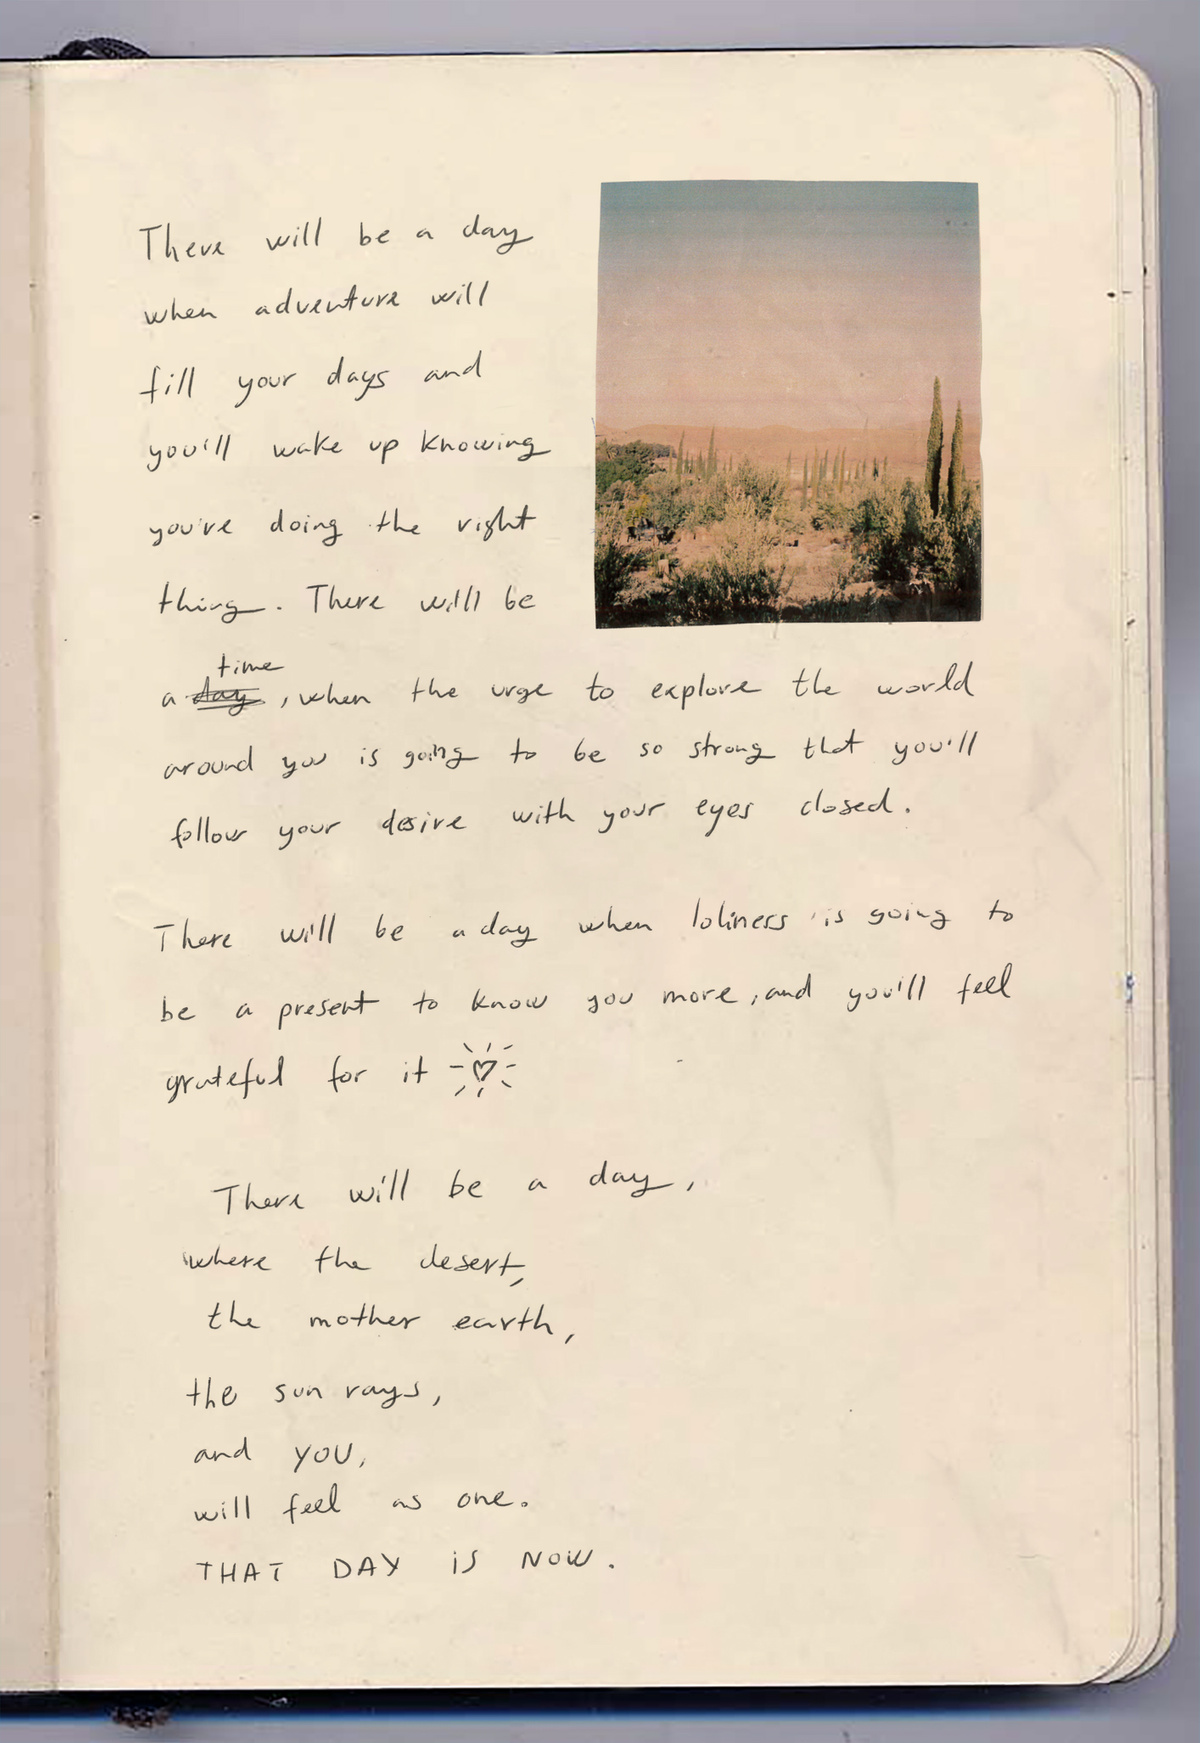 There will be a day
when adventure will
fill your days and
you'll wake up knowing
you're doing the right
thing. There will be
time
a day, when the urge to explore the world
around you is going to be so strong that you'll
follow your desire with your eyes closed.
There will be a day when loliness is going to
be a present to know you more, and you'll feel
grateful for it
There will be a day,
where the desert,
the mother earth,
the sun rays,
and YOU,
will feel as one.
THAT DAY iS NOW.